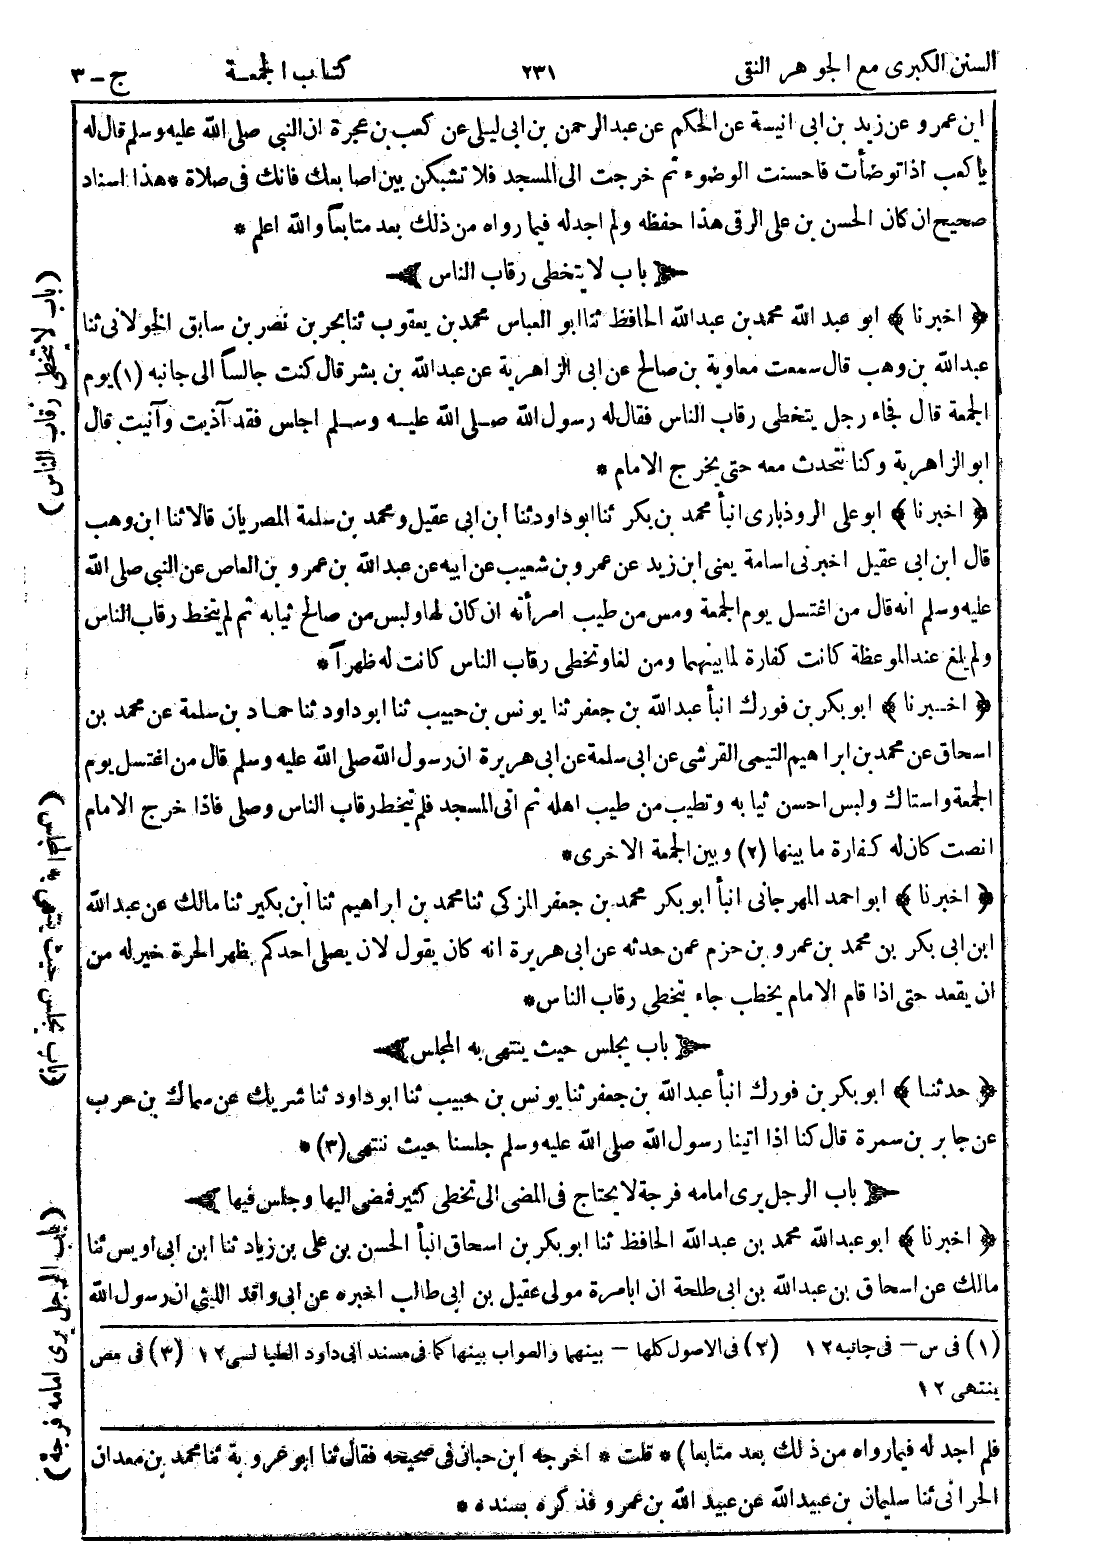 السنن الكبرى مع الجوهر النقى ٢٣١ كتاب الجمعة ج-٣
ابن عمرو عن زيد بن ابى انيسة عن الحكم عن عبد الرحمن بن ابى ليلى عن كعب بن عجرة ان النبى صلى الله عليه وسلم قال له
يا كعب اذا توضأت فاحسنت الوضوء ثم خرجت الى المسجد فلا تشبكن بين اصابعك فانك فى صلاة * هذا اسناد
صحيح ان كان الحسن بن على الرقى هذا حفظه ولم اجد له فيما رواه من ذلك بعد متابعاً والله اعلم *
باب لا يتخطى رقاب الناس
﴿ اخبرنا ﴾ ابو عبد الله محمد بن عبد الله الحافظ ثنا ابو العباس محمد بن يعقوب ثنا بحر بن نصر بن سابق الخولانى ثنا
عبد الله بن وهب قال سمعت معاوية بن صالح عن ابى الزاهرية عن عبد الله بن بشر قال كنت جالساً الى جانبه (١) يوم
الجمعة قال فجاء رجل يتخطى رقاب الناس فقال له رسول الله صلى الله عليه وسلم اجلس فقد آذيت وآنيت قال
ابو الزاهرية وكنا نتحدث معه حتى يخرج الامام *
﴿ اخبرنا ﴾ ابو على الروذبارى انبأ محمد بن بكر ثنا ابو داود ثنا ابن ابى عقيل ومحمد بن سلمة المصريان قالا ثنا ابن وهب
قال ابن ابى عقيل اخبرنى اسامة يعنى ابن زيد عن عمرو بن شعيب عن ابيه عن عبد الله بن عمرو بن العاص عن النبى صلى الله
عليه وسلم انه قال من اغتسل يوم الجمعة ومس من طيب امرأته ان كان لها ولبس من صالح ثيابه ثم لم يتخط رقاب الناس
ولم يلغ عند الموعظة كانت كفارة لما بينهما ومن لغا وتخطى رقاب الناس كانت له ظهراً *
﴿ اخبرنا ﴾ ابو بكر بن فورك انبأ عبد الله بن جعفر ثنا يونس بن حبيب ثنا ابو داود ثنا حماد بن سلمة عن محمد بن
اسحاق عن محمد بن ابراهيم التيمى القرشى عن ابى سلمة عن ابى هريرة ان رسول الله صلى الله عليه وسلم قال من اغتسل يوم
الجمعة واستاك ولبس احسن ثيابه وتطيب من طيب اهله ثم اتى المسجد فلم يتخط رقاب الناس وصلى فاذا خرج الامام
انصت كان له كفارة ما بينها (٢) وبين الجمعة الاخرى *
﴿ اخبرنا ﴾ ابو احمد المهرجانى انبأ ابو بكر محمد بن جعفر المزكى ثنا محمد بن ابراهيم ثنا ابن بكير ثنا مالك عن عبد الله
ابن ابى بكر بن محمد بن عمرو بن حزم عمن حدثه عن ابى هريرة انه كان يقول لان يصلى احدكم بظهر الحرة خير له من
ان يقعد حتى اذا قام الامام يخطب جاء تخطى رقاب الناس *
باب يجلس حيث ينتهى به المجلس
﴿ حدثنا ﴾ ابو بكر بن فورك انبأ عبد الله بن جعفر ثنا يونس بن حبيب ثنا ابو داود ثنا شريك عن سماك بن حرب
عن جابر بن سمرة قال كنا اذا اتينا رسول الله صلى الله عليه وسلم جلسنا حيث ننتهى (٣) *
باب الرجل يرى امامه فرجة لا يحتاج فى المضى الى تخطى كثير فمضى اليها وجلس فيها
﴿ اخبرنا ﴾ ابو عبد الله محمد بن عبد الله الحافظ ثنا ابو بكر بن اسحاق انبأ الحسن بن على بن زياد ثنا ابن ابى اويس ثنا
مالك عن اسحاق بن عبد الله بن ابى طلحة ان ابا مرة مولى عقيل بن ابى طالب اخبره عن ابى واقد الليثى ان رسول الله
(١) فى س – فى جانبه ١٢ (٢) فى الاصول كلها – بينهما والصواب بينها كما فى مسند ابى داود الطيالسى ١٢ (٣) فى مص
ينتهى ١٢
فلم اجد له فيما رواه من ذلك بعد متابعا) * قلت * اخرجه ابن حبان فى صحيحه فقال ثنا ابو عروبة ثنا محمد بن معدان
الحرانى ثنا سليمان بن عبيد الله عن عبيد الله بن عمرو فذكره بسنده *
(باب لا يتخطى رقاب الناس)
(باب يجلس حيث ينتهى به المجلس)
(باب الرجل يرى امامه فرجة)